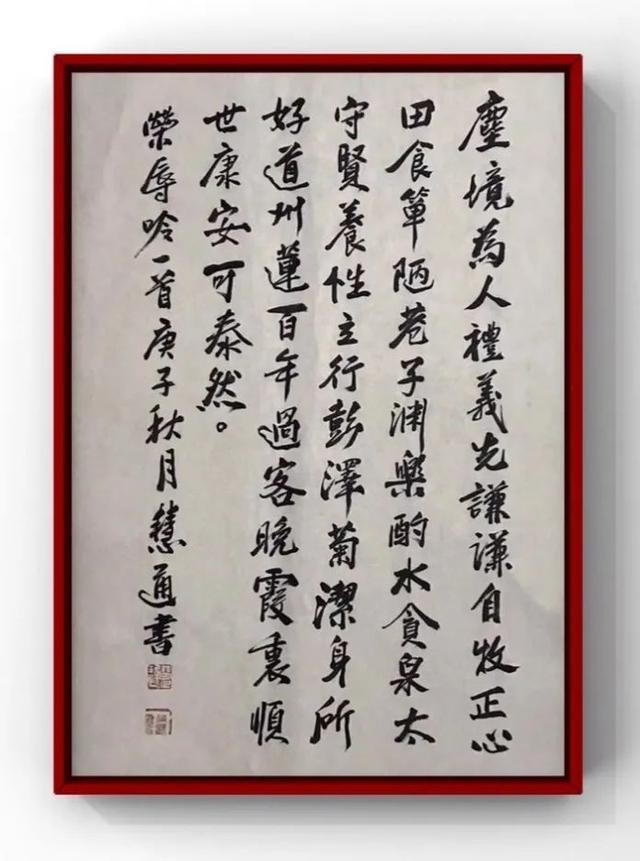 塵境為人禮義先謙謙自牧正心
田食簞陋巷子渊樂酌水貪泉太
守賢養性立行彭澤菊潔身所
好道州蓮百年過客晚霞裏順
世康安可泰然。
榮辱吟一首庚子秋月慧通書